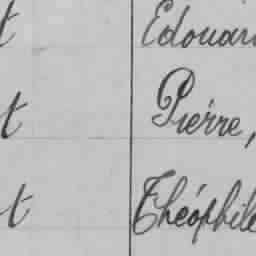 t Edouar
t Pierre,
t Théophile